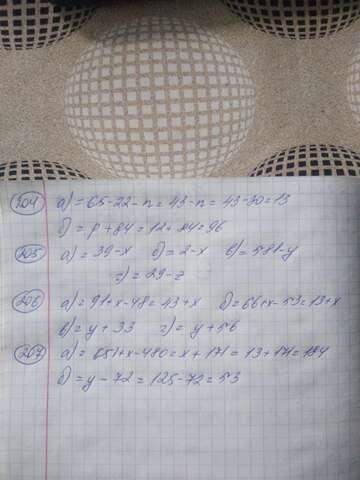 204 а) = 65-22-n = 43-n = 43-30 = 13
б) = p+84 = 12+84 = 96
205 а) = 39-x б) = 2-x в) = 581-y
г) = 29-z
206 а) = 91+x-48 = 43+x б) = 66+x-53 = 13+x
в) = y+33 г) = y+56
207 а) = 651+x-480 = x+171 = 13+171 = 184
б) = y-72 = 125-72 = 53